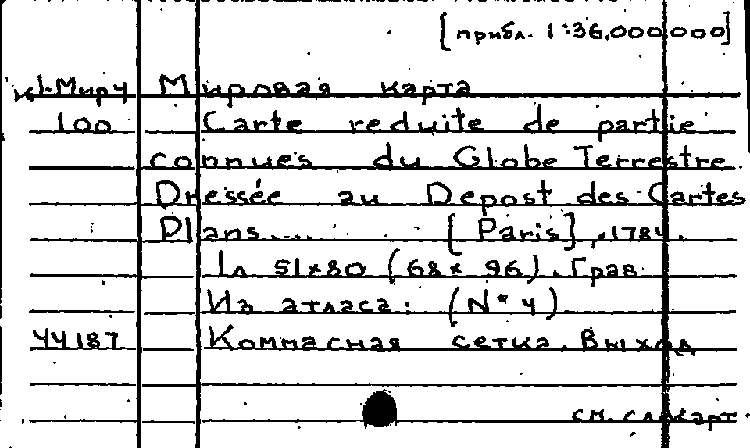 [прибл. 1:36,000,000]
Мировая карта
100 Carte reduite de partie
connues du Globe Terrestre
Dressée au Depost des Cartes
Plans.... [Paris], 1784.
1 л 51x80 (68x 96). Грав.
Из атласа: (N° 4)
44187 Компасная сетка. Выход
см. след карт